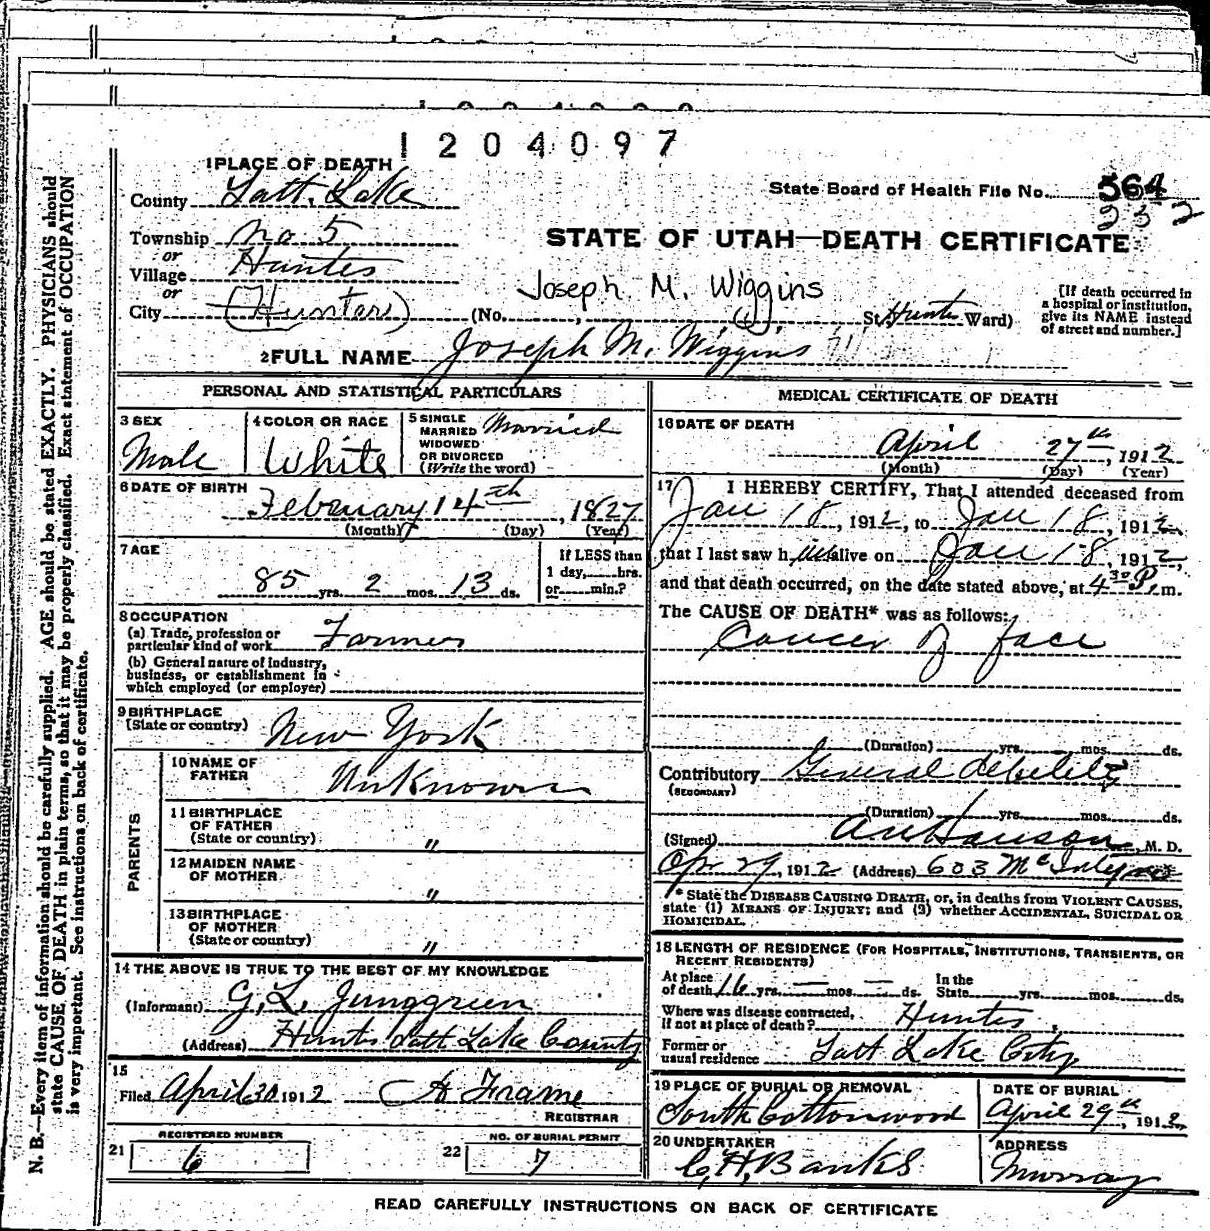 1204097
1 PLACE OF DEATH
County Salt Lake
State Board of Health File No. 564
932
Township No 5
or
Village Hunter
or
City (Hunter)
STATE OF UTAH—DEATH CERTIFICATE
Joseph M. Wiggins
(No. St. Hunter Ward)
[If death occurred in
a hospital or institution,
give its NAME instead
of street and number.]
2 FULL NAME Joseph M. Wiggins
PERSONAL AND STATISTICAL PARTICULARS
3 SEX
Male
4 COLOR OR RACE
White
5 SINGLE
MARRIED
WIDOWED
OR DIVORCED
(Write the word)
Married
6 DATE OF BIRTH
February 14th, 1827
(Month) (Day) (Year)
7 AGE
85 yrs. 2 mos. 13 ds.
If LESS than
1 day, hrs.
or min.?
8 OCCUPATION
(a) Trade, profession or
particular kind of work Farmer
(b) General nature of industry,
business, or establishment in
which employed (or employer)
9 BIRTHPLACE
(State or country) New York
PARENTS
10 NAME OF
FATHER Unknown
11 BIRTHPLACE
OF FATHER
(State or country) "
12 MAIDEN NAME
OF MOTHER "
13 BIRTHPLACE
OF MOTHER
(State or country) "
14 THE ABOVE IS TRUE TO THE BEST OF MY KNOWLEDGE
(Informant) G. L. Junggreen
(Address) Hunter Salt Lake County
15
Filed April 30 1912 A Frame
REGISTRAR
21
REGISTERED NUMBER
6
22
NO. OF BURIAL PERMIT
7
MEDICAL CERTIFICATE OF DEATH
16 DATE OF DEATH
April 27th, 1912
(Month) (Day) (Year)
17 I HEREBY CERTIFY, That I attended deceased from
Jan 18, 1912, to Jan 18, 1912,
that I last saw him alive on Jan 18, 1912,
and that death occurred, on the date stated above, at 4 30 P. m.
The CAUSE OF DEATH* was as follows:
Cancer of face
(Duration) yrs. mos. ds.
Contributory General debility
(SECONDARY)
(Duration) yrs. mos. ds.
(Signed) Hanson, M. D.
Apr 29, 1912 (Address) 603 McIntyre
* State the DISEASE CAUSING DEATH, or, in deaths from VIOLENT CAUSES,
state (1) MEANS OF INJURY; and (2) whether ACCIDENTAL, SUICIDAL OR
HOMICIDAL.
18 LENGTH OF RESIDENCE (FOR HOSPITALS, INSTITUTIONS, TRANSIENTS, OR
RECENT RESIDENTS)
At place
of death 16 yrs. — mos. — ds.
In the
State yrs. mos. ds.
Where was disease contracted,
if not at place of death? Hunter,
Former or
usual residence Salt Lake City
19 PLACE OF BURIAL OR REMOVAL
South Cottonwood
DATE OF BURIAL
April 29th, 1912
20 UNDERTAKER
C. H. Banks
ADDRESS
Murray
READ CAREFULLY INSTRUCTIONS ON BACK OF CERTIFICATE
N. B.—Every item of information should be carefully supplied. AGE should be stated EXACTLY. PHYSICIANS should
state CAUSE OF DEATH in plain terms, so that it may be properly classified. Exact statement of OCCUPATION
is very important. See instructions on back of certificate.